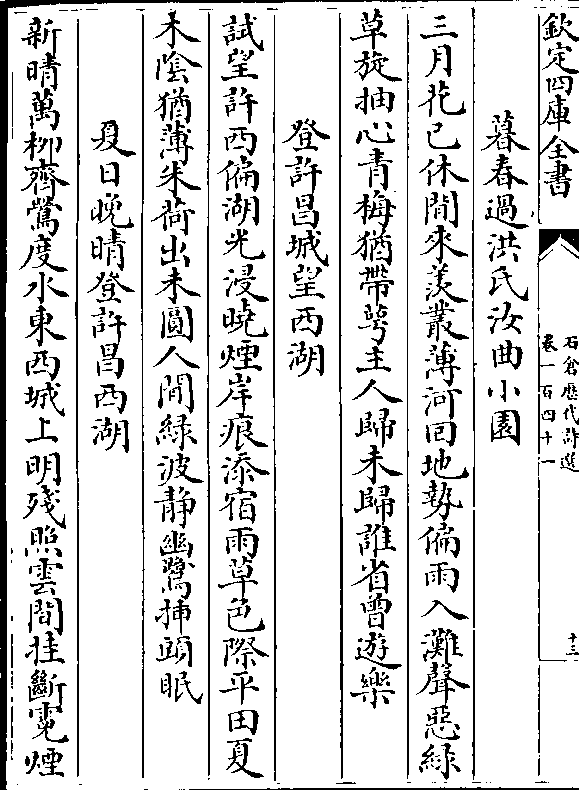 欽定四庫全書
石倉歴代詩選
卷一百四十一
十三
暮春過洪氏汝曲小園
三月花已休閒來羡叢薄河回地勢偏雨入灘聲惡緑
草旋抽心青梅猶帶萼主人歸未歸誰省曾遊樂
登許昌城望西湖
試望許西偏湖光浸曉煙岸痕添宿雨草色際平田夏
木陰猶薄朱荷出未圓人閒緑波静幽鷺挿頭眠
夏日晚晴登許昌西湖
新晴萬柳齊鶯度水東西城上明殘照雲間挂斷霓煙